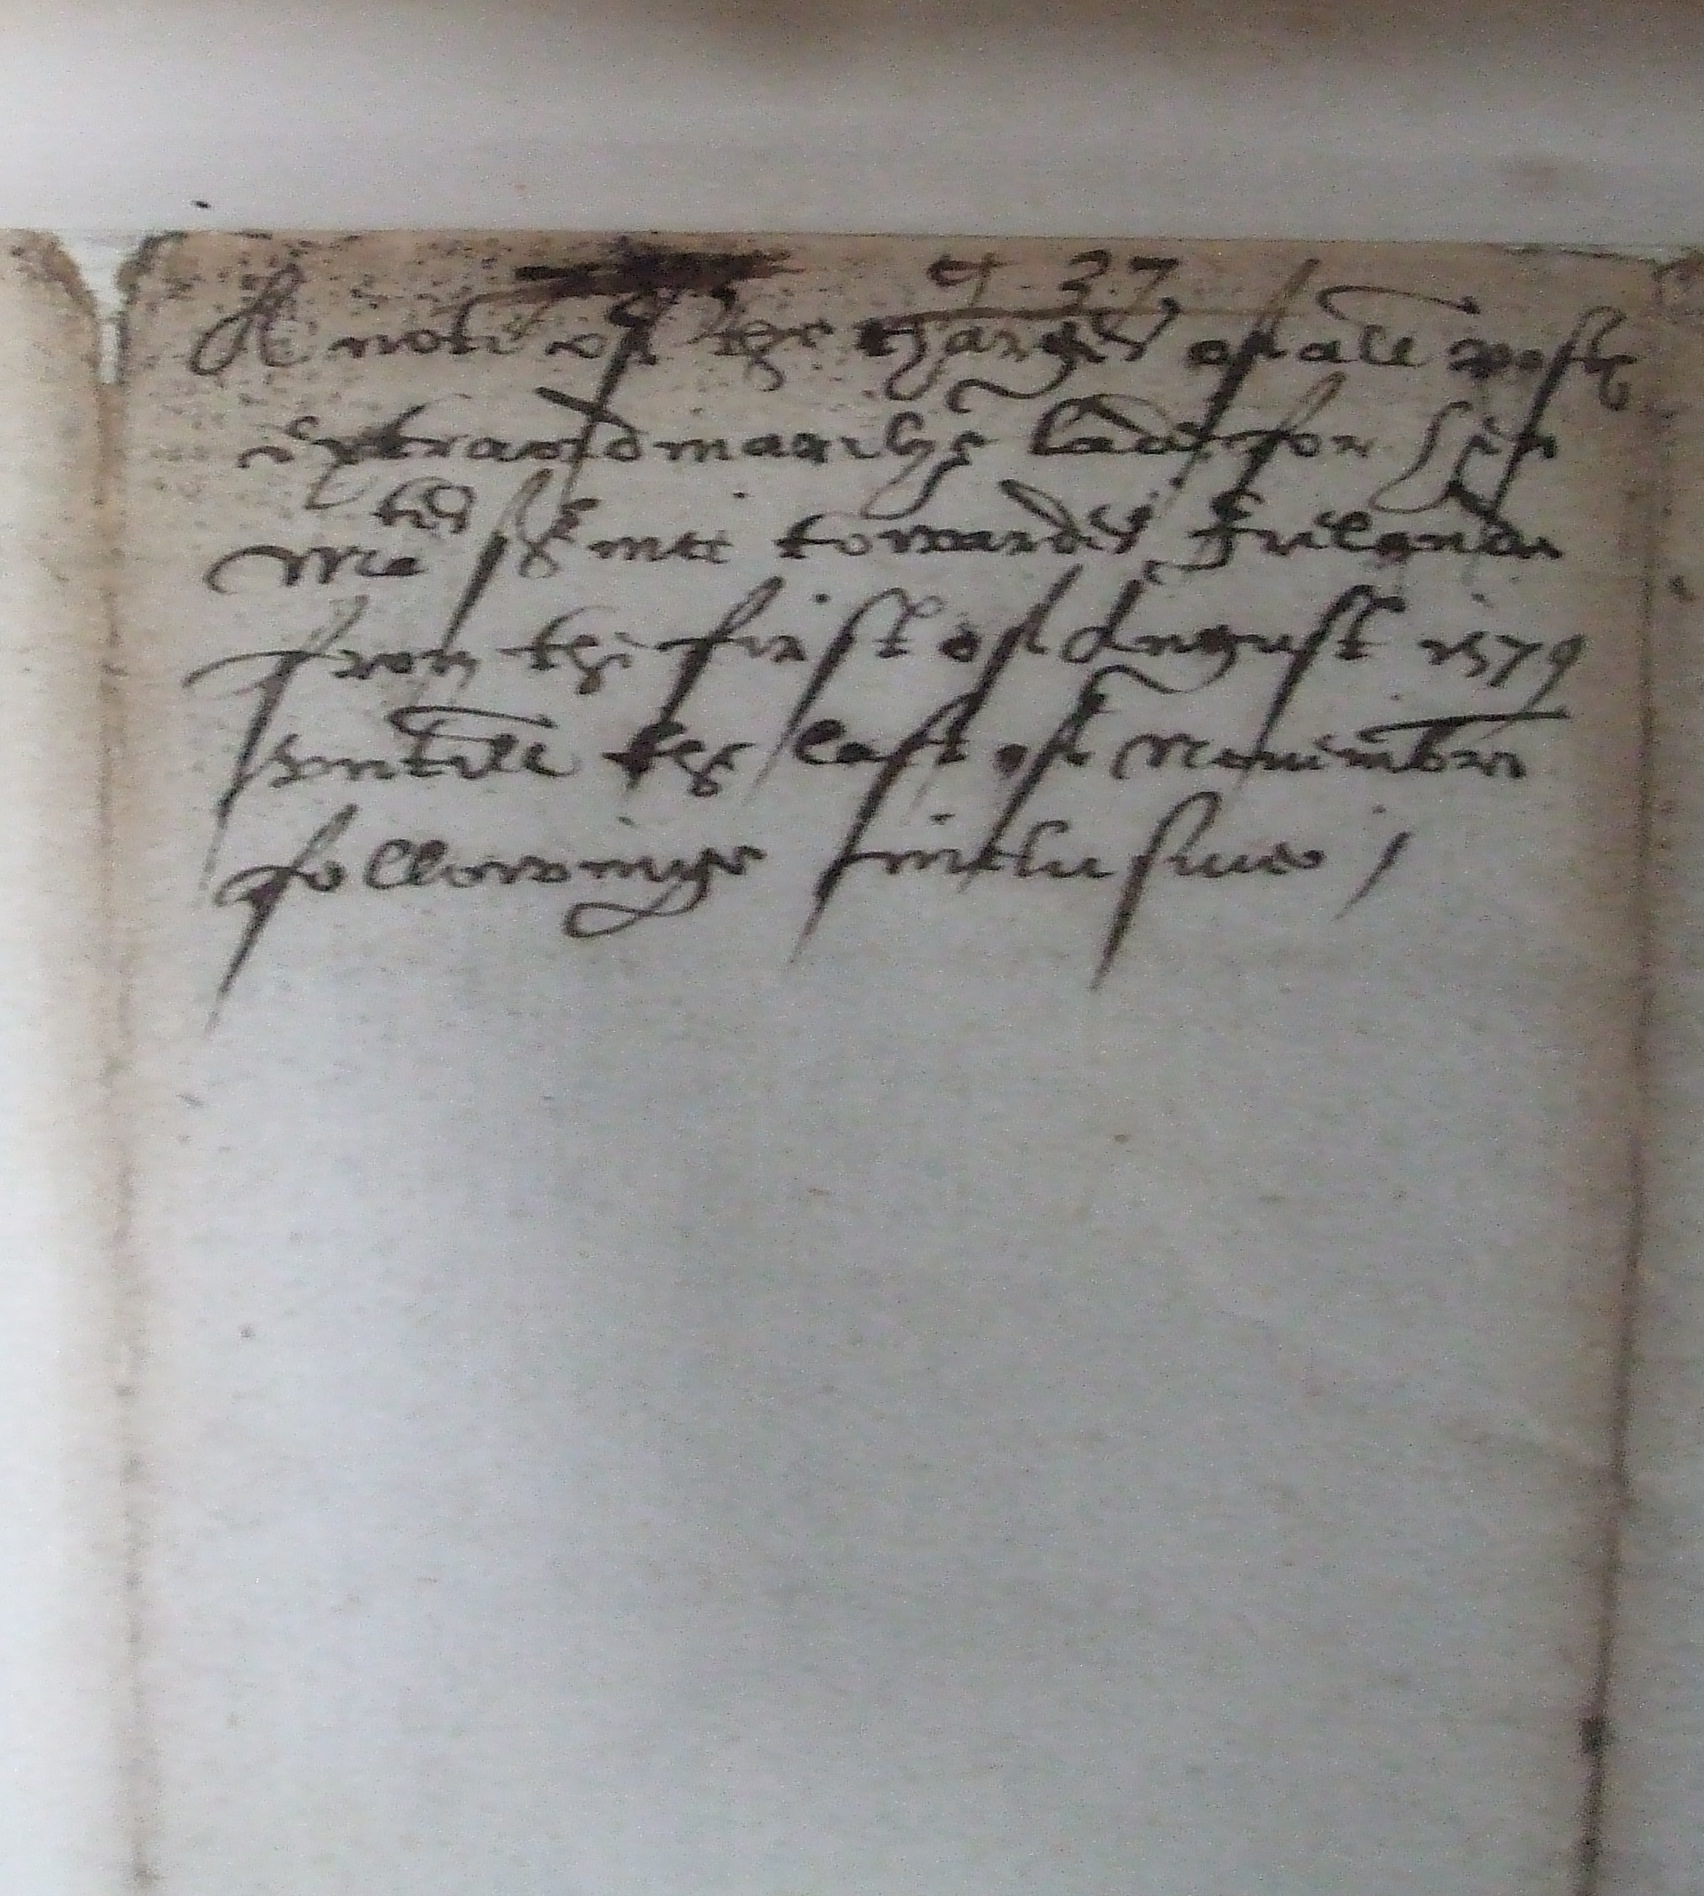 437
A note of the charges of all poste
extraordinarilye laide for her
Ma^ties s^rvice towardes Irelande
from the first of August 1579
vntill the last of Nouember
followinge inclusiue /